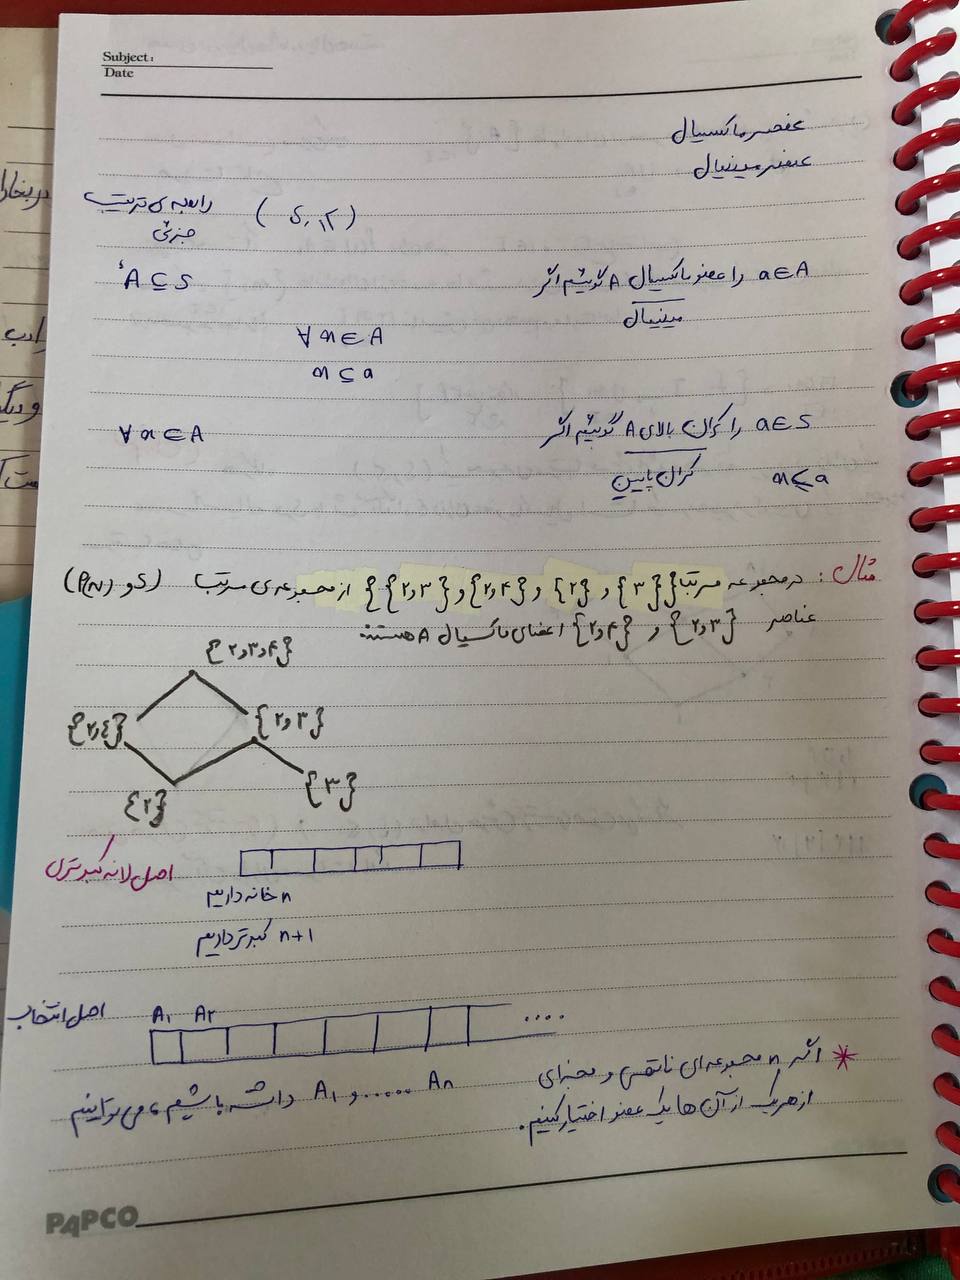 Subject:
Date
عنصر ماکسیمال
عنصر مینیمال
(S, R) رابطه‌ی ترتیب
جزئی
a∈A را عضو ماکسیمال A گوئیم اگر A ⊆ S
مینیمال
∀ x∈A
x ⊆ a
a∈S را کران بالای A گوئیم اگر ∀ x∈A
کران پایین x ⊆ a
مثال: در مجموعه مرتبا {{۳} و {۲} و {۲و۴} و {۲و۳}} از مجموعه‌ی مرتب (P(N) و ⊆)
عناصر {۲و۳} و {۲و۴} اعضای ماکسیمال A هستند
{۲و۳و۴}
{۲و٤} {۲و۳}
{۲} {۳}
اصل لانه کبوتری
n خانه داریم
n+۱ کبوتر داریم
اصل انتخاب A۱ A۲ ....
* اگر n مجموعه‌ای ناتهی و مجزای
A۱ و ...... An داشته باشیم، می‌توانیم
از هر یک از آن‌ها یک عضو اختیار کنیم.
PAPCO